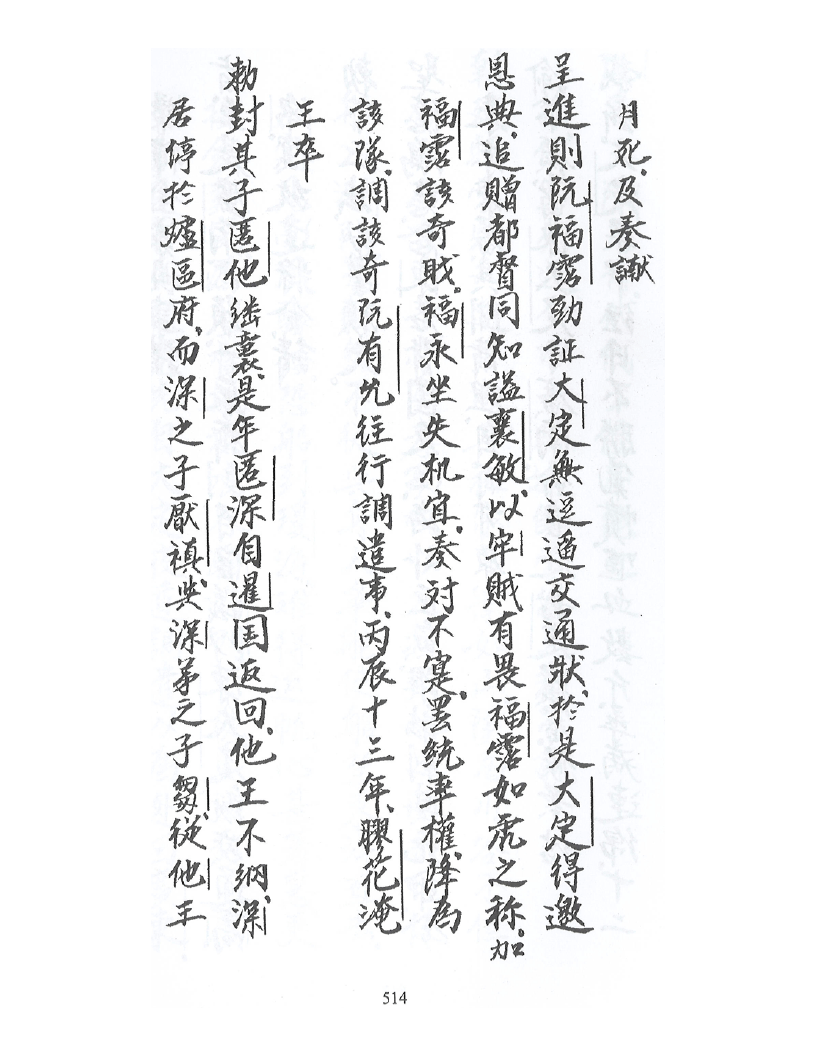 月死及奏讞
呈進則阮福雹勁証大定無逗遛交通狀於是大定得邀
恩典追贈都督同知謚襄敏以牢賊有畏福雹如虎之称加
福雹該奇戝福永坐失机宜奏対不寔罢統率權降為
該隊調該奇阮有允往行調遣事丙辰十三年膠花淹
王卒
勅封其子匿他継襲是年匿深自暹国返回他王不納深
居停於爐區府而深之子厭禛與深弟之子芻從他王
514